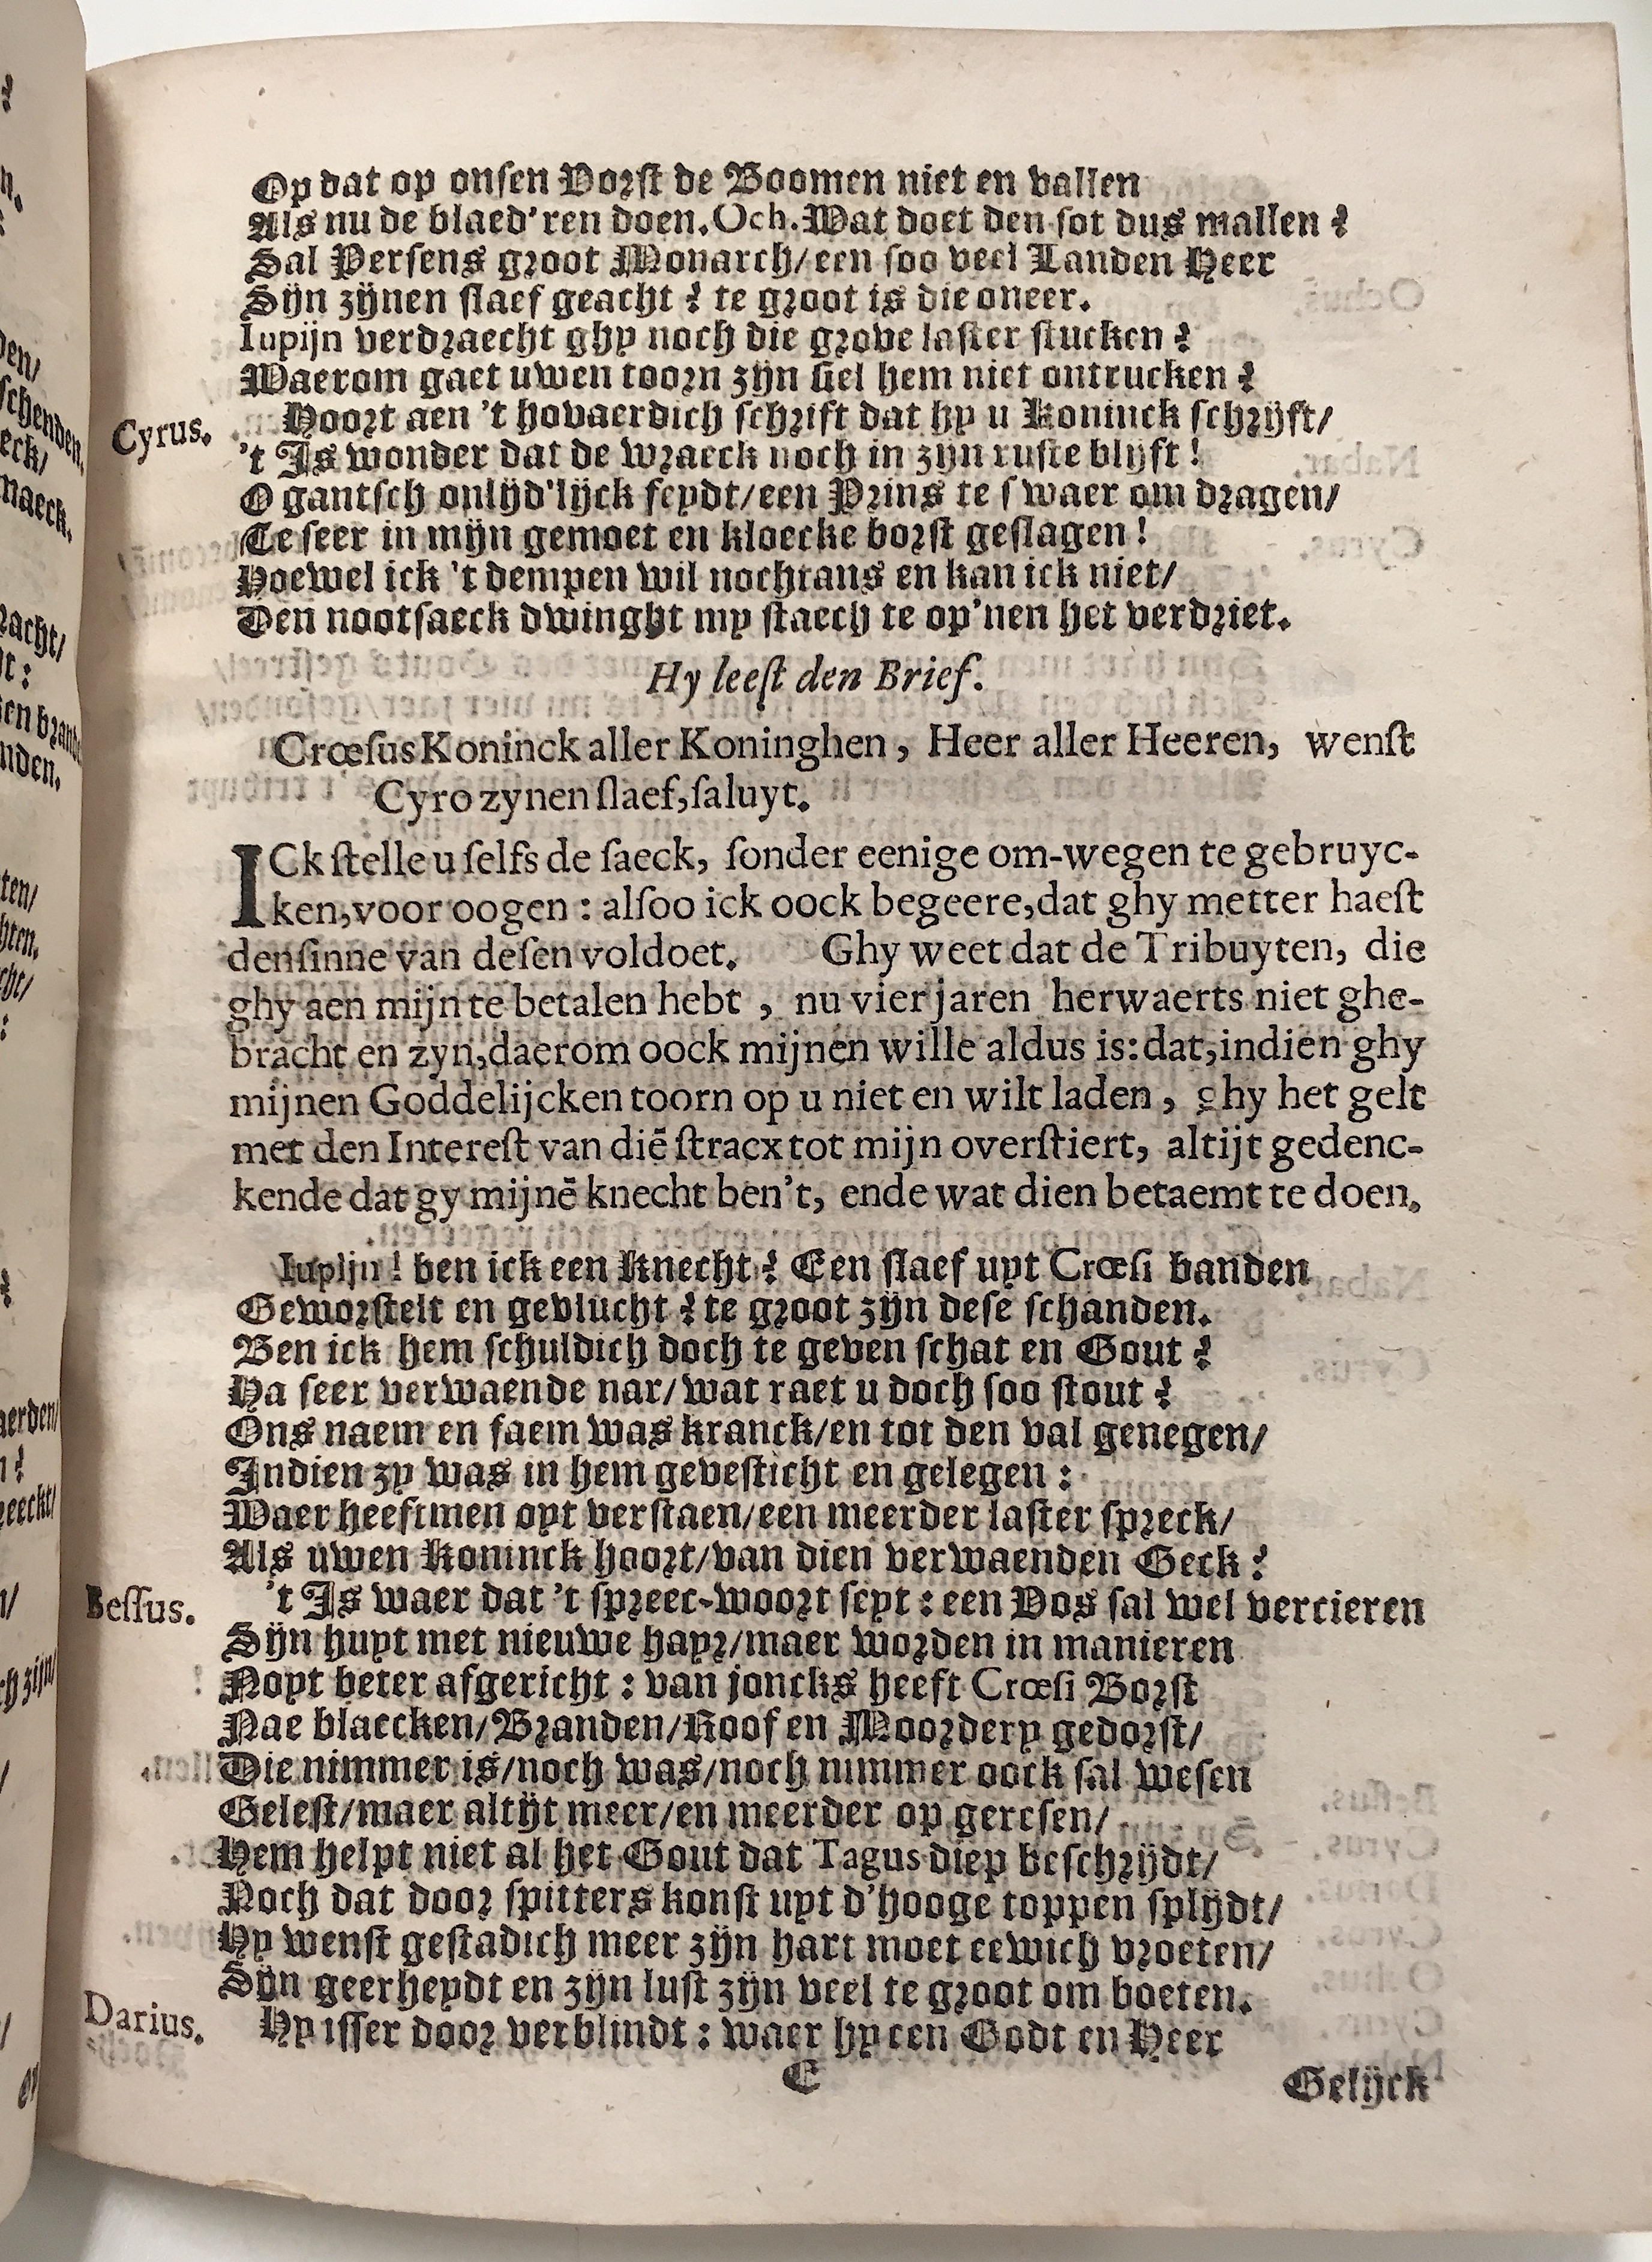 Op dat op onsen Vorst de Boomen niet en vallen
Als nu de blaed'ren doen. Och. Wat doet den sot dus mallen?
Sal Persens groot Monarch/ een soo veel Landen Heer
Sijn zijnen slaef geacht? te groot is die oneer.
Iupijn verdraecht ghy noch die grove laster stucken?
Waerom gaet uwen toorn zijn siel hem niet ontrucken?
Cyrus. Hoort aen 't hovaerdich schrift dat hy u Koninck schrijft/
't Is wonder dat de wraeck noch in zijn ruste blijft!
O gantsch onlijd'lijck feydt/ een Prins te swaer om dragen/
Te seer in mijn gemoet en kloecke borst geslagen!
Hoewel ick 't dempen wil nochtans en kan ick niet/
Den nootsaeck dwinght my staech te op'nen het verdriet.
Hy leest den Brief.
Crœsus Koninck aller Koninghen, Heer aller Heeren, wenst
Cyro zynen slaef, saluyt.
ICk stelle u selfs de saeck, sonder eenige om-wegen te gebruyc-
ken, voor oogen: alsoo ick oock begeere, dat ghy metter haest
den sinne van desen voldoet. Ghy weet dat de Tribuyten, die
ghy aen mijn te betalen hebt, nu vier jaren herwaerts niet ghe-
bracht en zyn, daerom oock mijnen wille aldus is: dat, indien ghy
mijnen Goddelijcken toorn op u niet en wilt laden, ghy het gelt
met den Interest van diē stracx tot mijn overstiert, altijt gedenc-
kende dat gy mijnē knecht ben't, ende wat dien betaemt te doen.
Iupijn! ben ick een Knecht? Een slaef uyt Crœsi banden
Geworstelt en gevlucht? te groot zijn dese schanden.
Ben ick hem schuldich doch te geven schat en Gout?
Ha seer verwaende nar/ wat raet u doch soo stout?
Ons naem en faem was kranck/ en tot den val genegen/
Indien zy was in hem gevesticht en gelegen:
Waer heeftmen oyt verstaen/ een meerder laster spreck/
Als uwen Koninck hoort/ van dien verwaenden Geck?
Bessus. 't Is waer dat 't spreec-woort seyt: een Vos sal wel vercieren
Sijn huyt met nieuwe hayr/ maer worden in manieren
Noyt beter afgericht: van joncks heeft Crœsi Borst
Nae blaecken/ Branden/ Roof en Moordery gedorst/
Die nimmer is/ noch was/ noch nimmer oock sal wesen
Gelest/ maer altijt meer/ en meerder op geresen/
Hem helpt niet al het Gout dat Tagus diep beschrijdt/
Noch dat door spitters konst uyt d'hooge toppen splijdt/
Hy wenst gestadich meer zijn hart moet eewich vroeten/
Sijn geerheydt en zijn lust zijn veel te groot om boeten.
Darius. Hy isser door verblindt: waer hy een Godt en Heer
E Gelijck